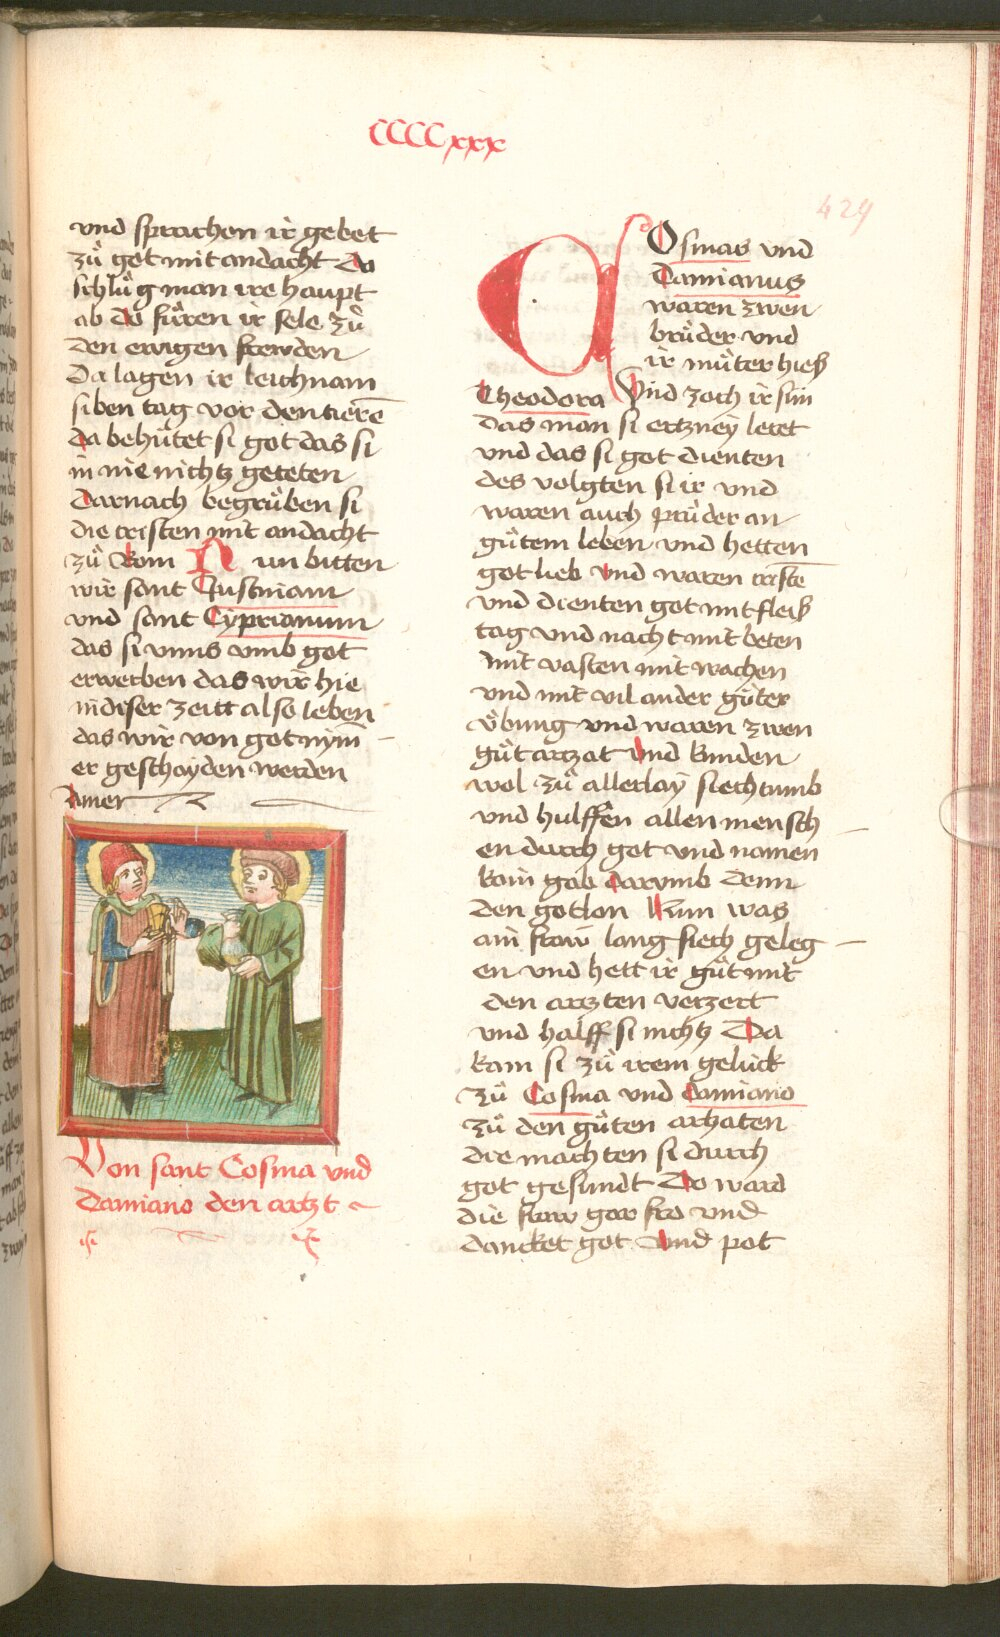 CCCCxxx
429
und sprachen ir gebet
zů got mit andacht Do
schlůg man ire haupt
ab do fůren ir sele zů
den ewigen frewden
Da lagen ir leichnam
siben tag vor den tierē
da behůtet si got das si
in nie nichtz geteten
Darnach begrůben si
die cristen mit andacht
zů Rom Nun bitten
wir sant Justinam
und sant Cyprianum
das si unns umb got
erwerben das wir hie
in diser zeitt also leben
das wir von got nym
er geschayden werden
Amen
Von sant Cosma und
Damiano den artzt
COsmas und
Damianus
waren zwen
brůder und
ir můter hieß
Theodora Und zoch ir sün
das man si ertzney leret
und das si got dienten
des volgten si ir und
waren auch průder an
gůtem leben und hetten
got lieb und waren cristē
und dienten got mit fleiß
tag und nacht mit beten
mit vasten mit wachen
und mit vil ander gůter
übung und waren zwen
gůt artzat und kunden
wol zů allerlay siechtumb
und hulffen allen mensch
en durch got und namen
kain gab darumb denn
den gotlon Nun was
ain fraw lang siech geleg
en und hett ir gůt mit
den artzten verzert
und halff si nichtz Da
kam si zů irem gelück
zů Cosma und Damiano
zů den gůten artzaten
die machten si durch
got gesundt Do ward
die fraw gar fro und
dancket got und pot